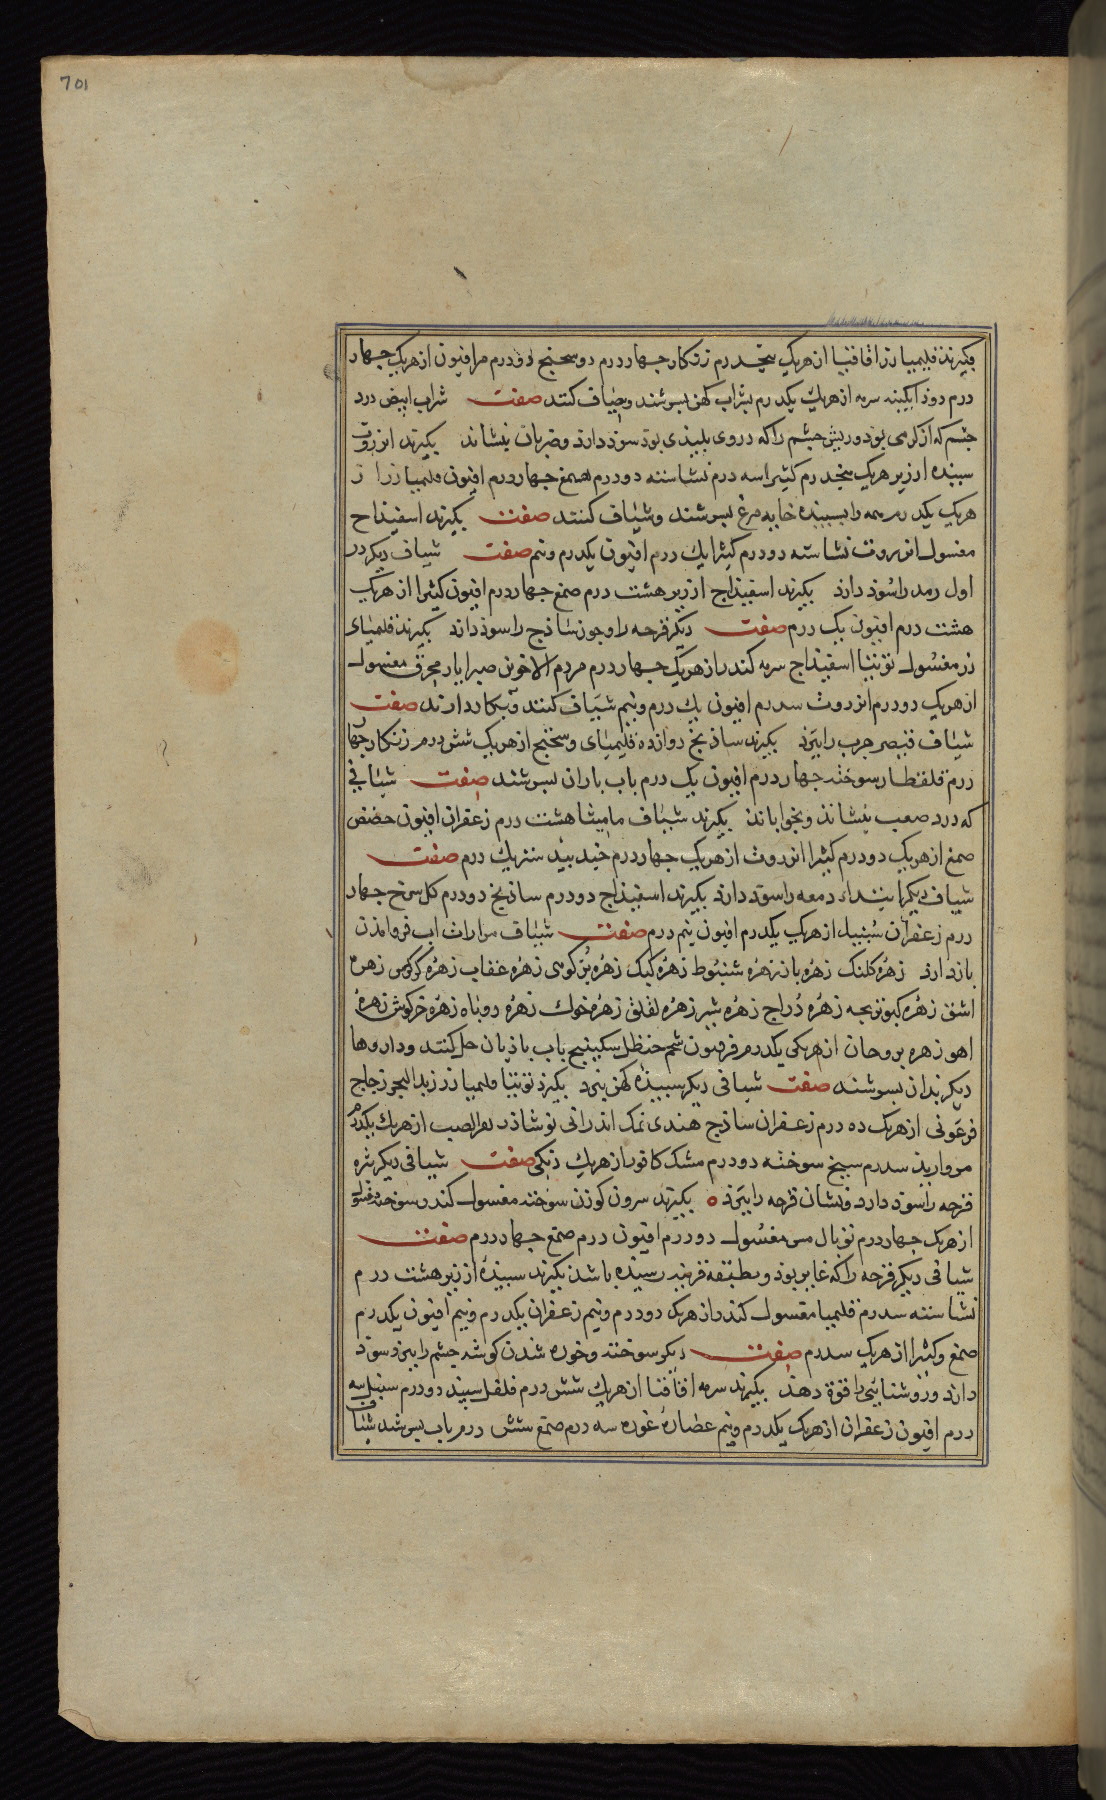 701
بگیرند قلیمیا زر اقاقیا از هریک پنجدرم زنکار جهار درم دو سختج دودرم مر افیون از هریک جهار
درم دوذ ابکینه سرمه از هریک یکدرم بشراب کهن بسرشند وشیاف کنند صفت شراب ابیض درد
جشم که از کرمی بود وریش جشم را که درروی بلیذی بود سوذ دارد وضربان بنشاند بکیرند انزروت
سبیده ارزیر هریک پنجدرم کثیرا سه درم نشاسته دودرم صمغ جهاردرم افیون قلیمیا زر از
هریک یکدرم همه را بسبیده خایه مرغ بسرشند وشیاف کنند صفت بکیرند اسفیذاج
مغسول انزروت نشاسته دودرم کثیرا یک درم افیون یکدرم ونیم صفت شیاف دیکر در
اول رمد را سوذ دارد بکیرند اسفیذاج ارزیر هشت درم صمغ جهاردرم افیون کثیرا از هریک
هشت درم افیون یک درم صفت دیکر قرحه را وجون شاذج را سوذ دارد بکیرند قلیمیای
زر مغسول توتیا اسفیذاج سرمه کندر از هریک جهاردرم مردم الاخوین صبر ابار محرق مغسول
از هریک دودرم انزروت سدرم افیون یک درم ونیم شیاف کنند وبکار دارند صفت
شیاف قیصر جرب را ببرد بکیرند ساذنج دوازده قلیمیای وسختج از هریک شش درم زنکار جهار
درم قلقطار سوخته جهاردرم افیون یک درم باب باران بسرشند صفت شیافی
که درد صعب بنشاند وبخواباند بکیرند شیاف مامیثا هشت درم زعفران افیون حضض
صمغ از هریک دودرم کثیرا انزروت از هریک جهاردرم جند بیدستر یک درم صفت
شیاف دیکر ابتداء دمعه را سود دارد بکیرند اسفیذاج دودرم ساذنج دودرم کل سرخ جهار
درم زعفران سنبل از هریک یکدرم افیون نیم درم صفت شیاف مرارات اب فروامذن
باز دارد زهره کلنک زهره باز زهره شبوط زهره کبک زهره بز کوهی زهره عقاب زهره کرکس زهره
اشق زهره کبوتر بجه زهره دراج زهره شیر زهره لقلق زهره خوک زهره روباه زهره خرکوش زهره
اهو زهره بروحان از هریکی یکدرم فرفیون شحم حنظل سکبینج باب باذیان حل کنند وداروها
دیکر بدان بسرشند صفت شیافی دیکر سبیده کهن ببرد بکیرند توتیا قلیمیا زر زبد البحر زجاج
فرعونی از هریک ده درم زعفران ساذج هندی نمک اندرانی نوشاذر بعر الضب از هریک یکدرم
مروارید سدرم سیخ سوخته دودرم مشک کافور از هریک دنکی صفت شیافی دیکر بثره
قرحه را سود دارد ونشان قرحه را ببرد ه بکیرند سرون کوزن سوخته مغسول کندر سوخته مغسول
از هریک جهاردرم توبال مس مغسول دودرم افیون درم صمغ جهاردرم صفت
شیافی دیکر قرحه را که غایر بود وبطبقه قرنیه رسیده باشد بکیرند سبیده ارزیر هشت درم
نشاسته سدرم قلیمیا مغسول کندر از هریک دودرم ونیم زعفران یکدرم ونیم افیون یکدرم
صمغ وکثیرا از هریک سدرم صفت دیکر سوختن وخوره شدن کوشه جشم را ببرد سود
دارد وروشنایی را قوة دهد بکیرند سرمه اقاقیا از هریک شش درم فلفل سبید دودرم سنبل سه
درم افیون زعفران از هریک یکدرم ونیم عصاره غوره سه درم صمغ شش درم باب بسرشد شیاف